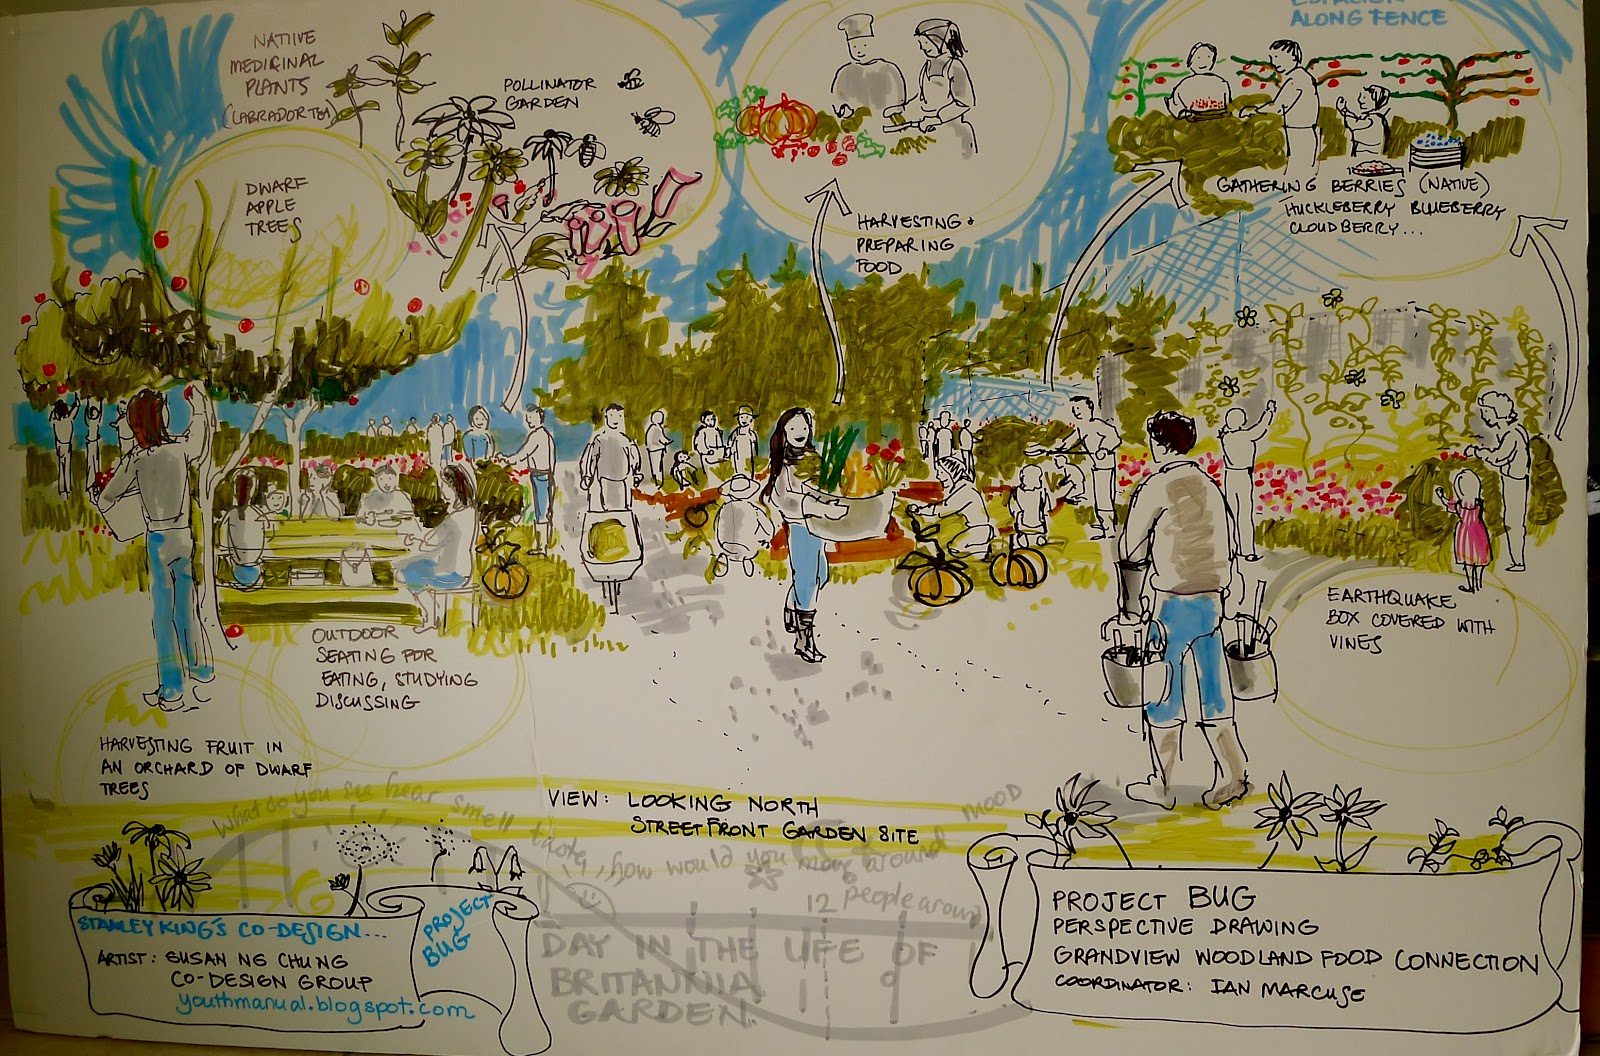 NATIVE
MEDICINAL
PLANTS
(LABRADOR TEA)
POLLINATOR
GARDEN
ALONG FENCE
DWARF
APPLE
TREES
HARVESTING +
PREPARING
FOOD
GATHERING BERRIES (NATIVE)
HUCKLEBERRY BLUEBERRY
CLOUDBERRY...
EARTHQUAKE
BOX COVERED WITH
VINES
OUTDOOR
SEATING FOR
EATING, STUDYING
DISCUSSING
HARVESTING FRUIT IN
AN ORCHARD OF DWARF
TREES
VIEW: LOOKING NORTH
STREETFRONT GARDEN SITE
What do you see hear smell taste, how would you move around mood
12 people around
DAY IN THE LIFE OF
BRITANNIA
GARDEN
STANLEY KING'S CO-DESIGN...
ARTIST: SUSAN NG CHUNG
CO-DESIGN GROUP
youthmanual.blogspot.com
PROJECT
BUG
PROJECT BUG
PERSPECTIVE DRAWING
GRANDVIEW WOODLAND FOOD CONNECTION
COORDINATOR: IAN MARCUSE